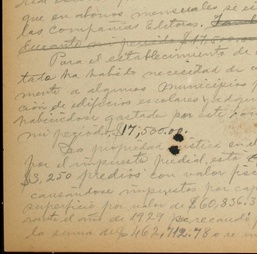 que en abonos mensuales se
las Compañías Editoras.
durante mi período $17,500.00
Para el establecimiento de
tado ha habido necesidad de
mente a algunos Municipios
ción de edificios escolares y
habiéndose gastado por este con
mi período, $17,500.00.
La propiedad rústica
por el impuesto predial, esta
$3,250 predios con valor fisc
causándose impuestos por cap
superficie por valor de $60,836.3
rante el año de 1929 se recaudó
la suma de $462,712.78 o se